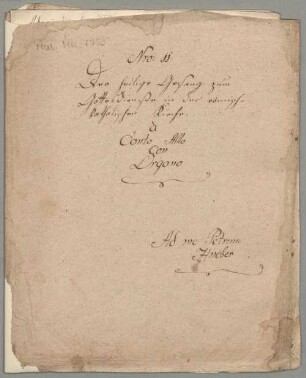 Nro: 11
Der heilige Gesang zum
Gottesdienste in der römisch-
katholischen Kirche.
a
Canto Alto
Con
Organo
Ad me Petrum
Hueber